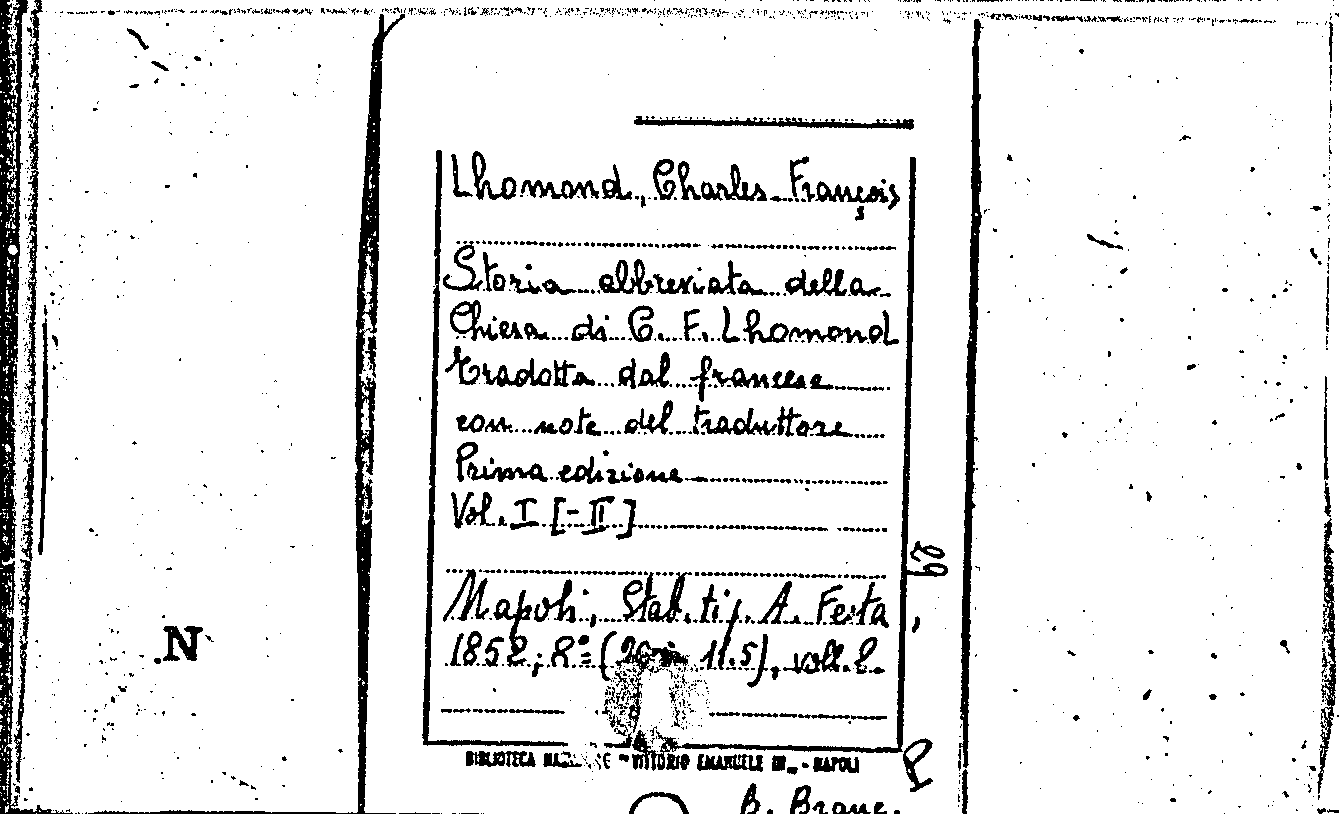 Lhomond, Charles François
Storia abbreviata della
Chiesa di C. F. Lhomond
tradotta dal francese
con note del traduttore
Prima edizione
Vol. I [-II]
29
Napoli, Stab. tip. A. Festa,
1852; 8° 11.5), voll. 2.
.N
BIBLIOTECA "VITTORIO EMANUELE III" - NAPOLI
B. Branc.